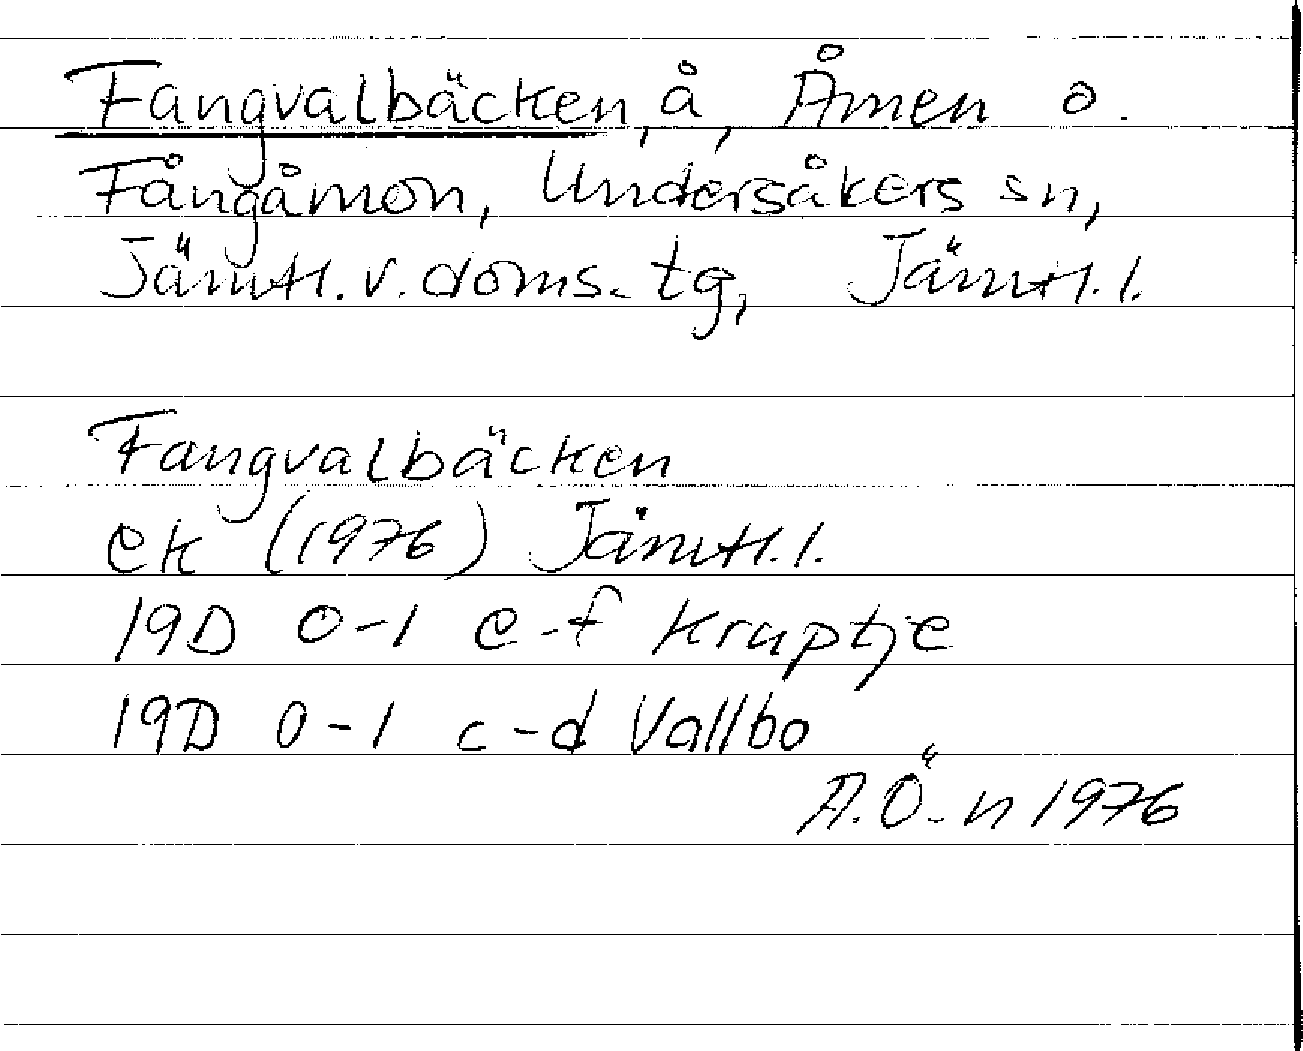 Fangvalbäcken, å, Åmen o.
Fångåmon, Undersåkers sn,
Jämtl. v. doms. tg, Jämtl. l.
Fangvalbäcken
ek (1976) Jämtl. l.
19D 0-1 e-f Kruptje
19D 0-1 c-d Vallbo
A.Ö-n 1976